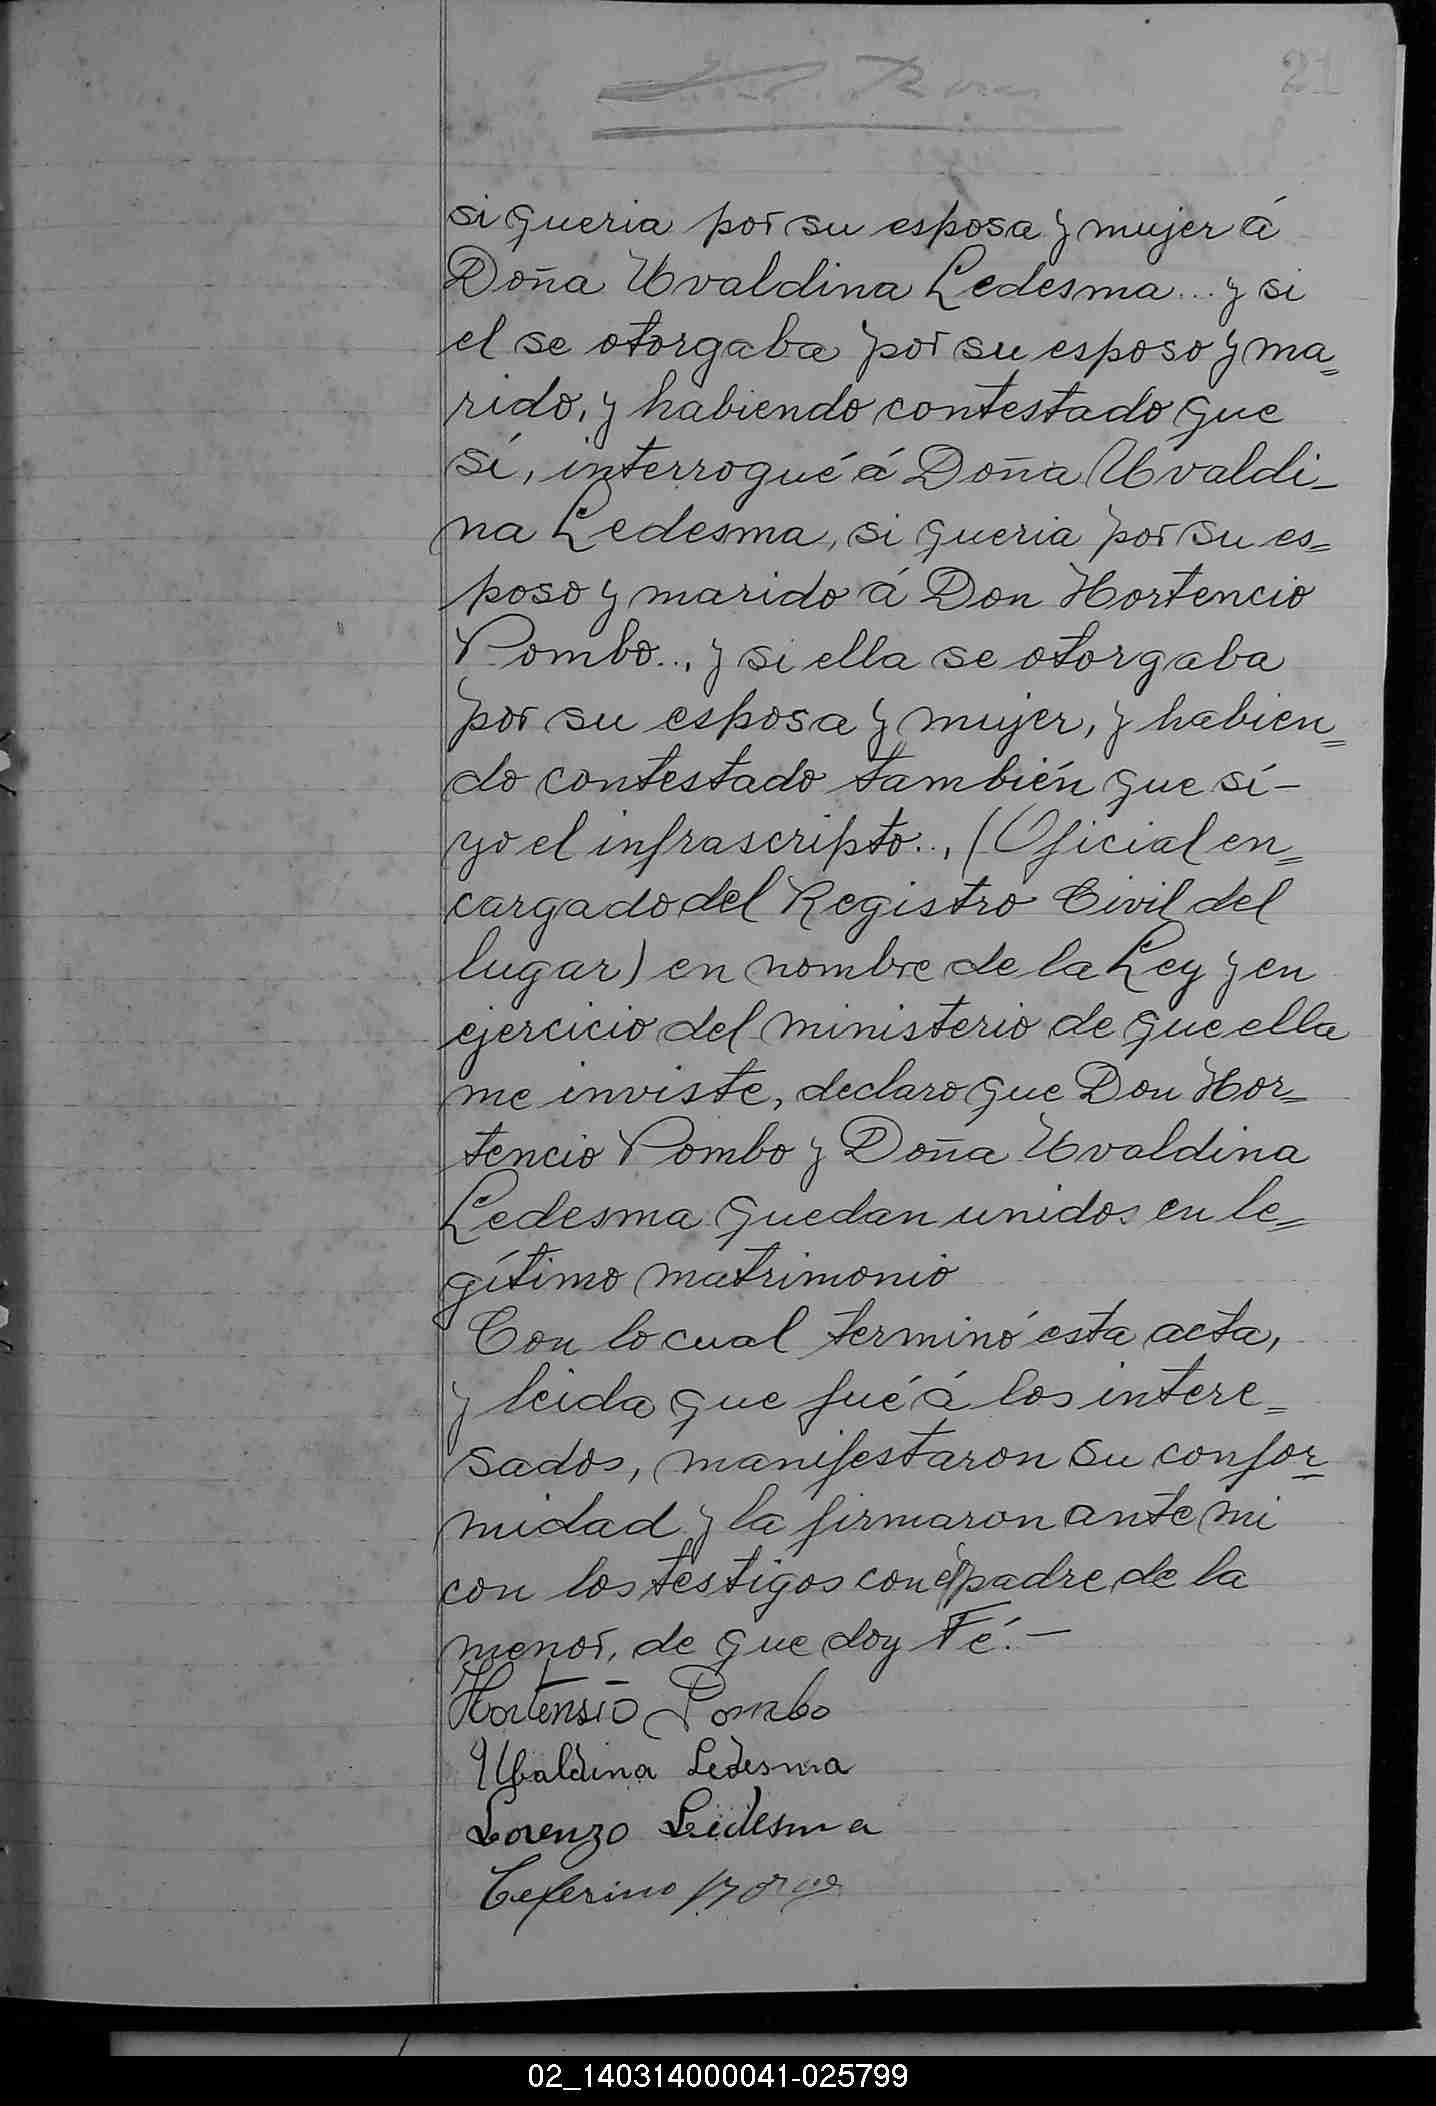 21
si queria por su esposa y mujer á
Doña Uvaldina Ledesma... y si
el se otorgaba por su esposo y ma=
rido, y habiendo contestado que
sí, interrogué á Doña Uvaldi-
na Ledesma, si queria por su es=
poso y marido á Don Hortencio
Pombo.., y si ella se otorgaba
por su esposa y mujer, y habien=
do contestado también que sí-
yo el infrascripto.., (Oficial en=
cargado del Registro Civil del
lugar) en nombre de la Ley y en
ejercicio del ministerio de que ella
me inviste, declaro que Don Hor=
tencio Pombo y Doña Uvaldina
Ledesma quedan unidos en le=
gítimo matrimonio
Con lo cual terminó esta acta,
y leida que fué á los intere=
sados, manifestaron su confor=
midad y la firmaron ante mi
con los testigos con el padre de la
menor, de que doy Fé.-
Hortensio Pombo
Ubaldina Ledesma
Lorenzo Ledesma
Ceferino
02_140314000041-025799